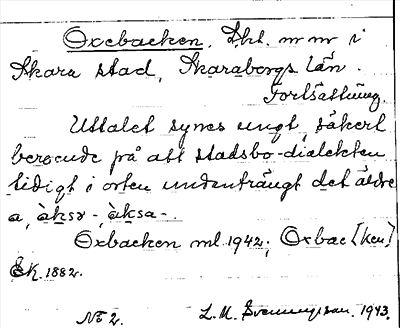 Oxebacken. Lht. m m i
Skara stad, Skaraborgs län.
Fortsättning.
Uttalet synes ungt, säkert
beroende på att stadsbo-dialekten
tidigt i orten undanträngt det äldre
a, àksə-, àksa-.
Oxbacken ml. 1942; Oxbac[ken]
EK. 1882.
No 2. L. M. Svenungsson. 1943.